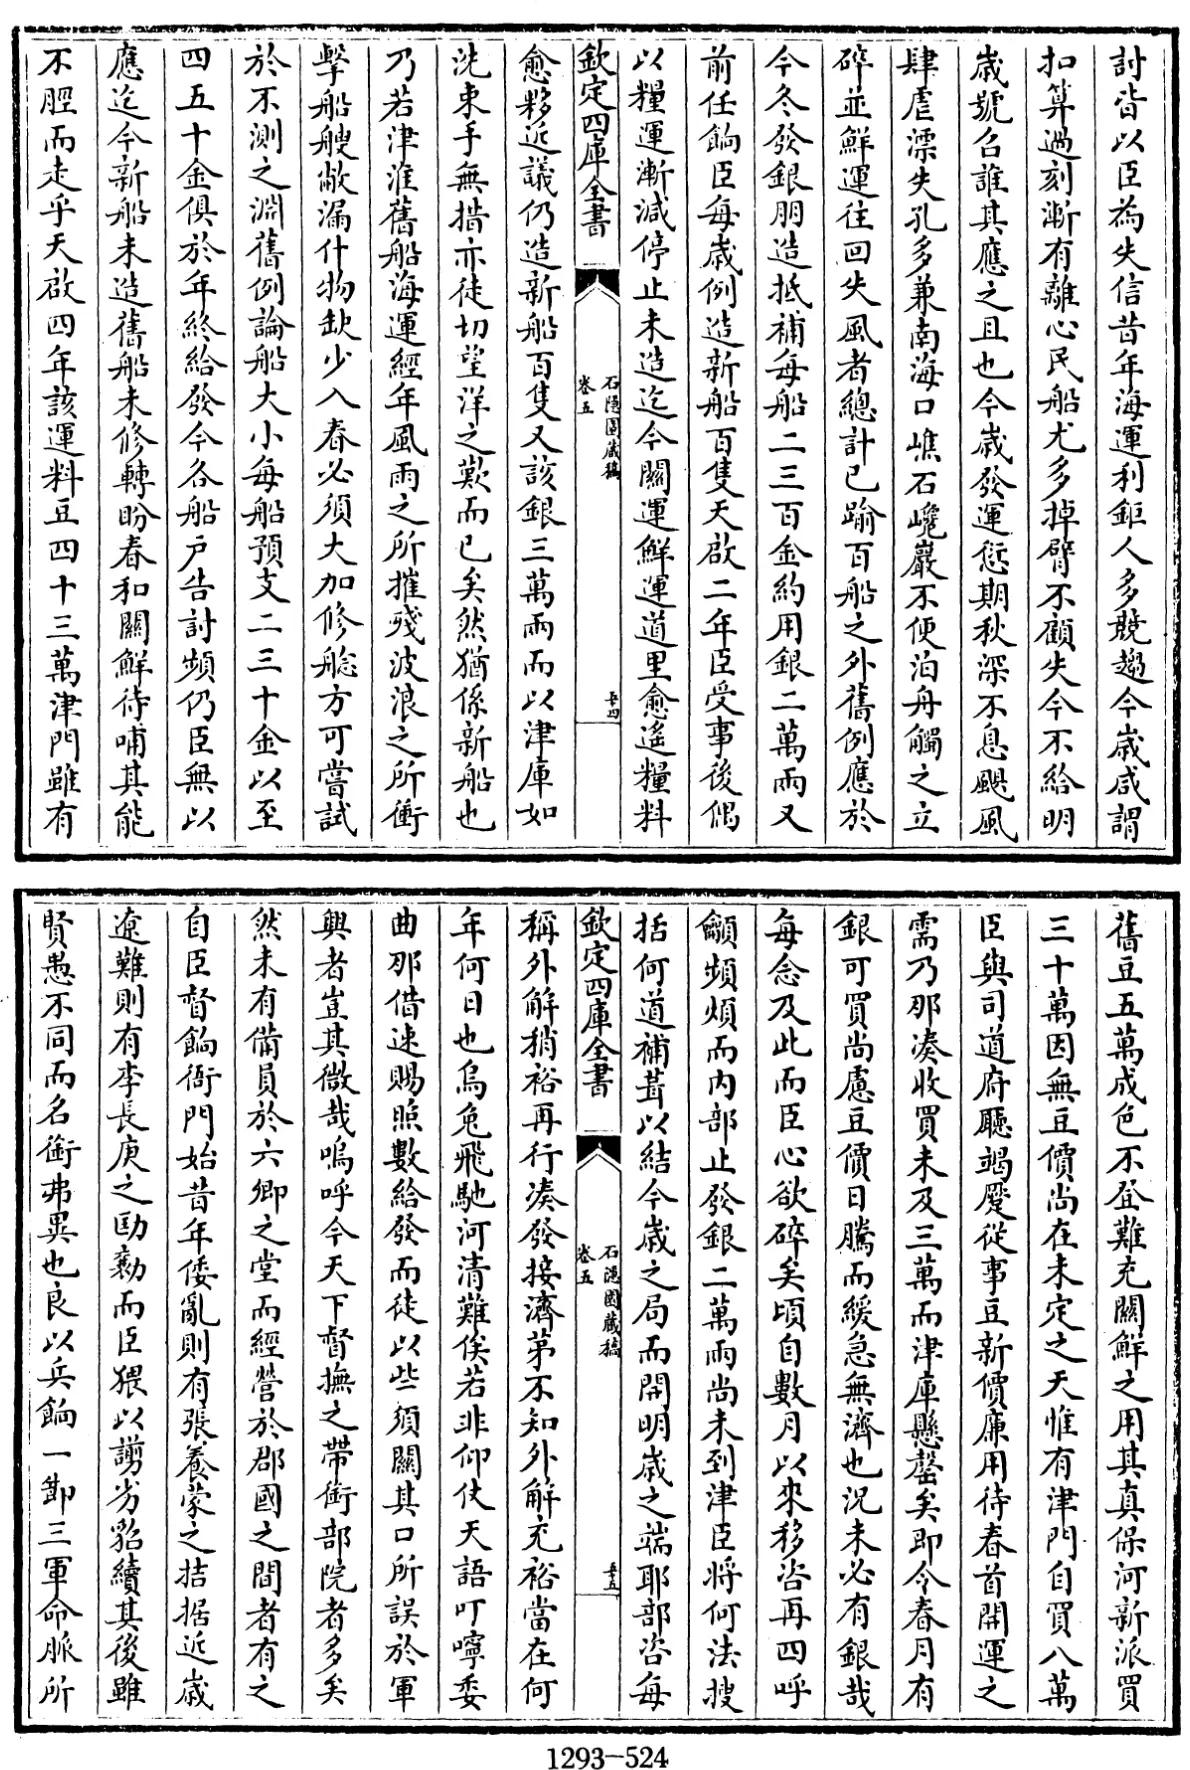 討皆以臣為失信昔年海運利鉅人多競趨今歲咸謂
扣算過刻漸有離心民船尤多掉臂不顧失今不給明
歲號召誰其應之且也今歲發運愆期秋深不息颶風
肆虐漂失孔多兼南海口嶕石巉巖不便泊舟觸之立
碎並鮮運往回失風者總計已踰百船之外舊例應於
今冬發銀朋造抵補每船二三百金約用銀二萬兩又
前任餉臣每歲例造新船百隻天啟二年臣受事後偶
以糧運漸減停止未造迄今關運鮮運道里愈遙糧料
欽定四庫全書
石隱園藏稿
卷五
五十四
愈夥近議仍造新船百隻又該銀三萬兩而以津庫如
洗束手無措亦徒切望洋之歎而已矣然猶係新船也
乃若津淮舊船海運經年風雨之所摧殘波浪之所衝
擊船艘敝漏什物缺少入春必須大加修艌方可嘗試
於不測之淵舊例論船大小每船預支二三十金以至
四五十金俱於年終給發今各船戶告討頻仍臣無以
應迄今新船未造舊船未修轉盼春和關鮮待哺其能
不脛而走乎天啟四年該運料豆四十三萬津門雖有
舊豆五萬成色不登難充關鮮之用其真保河新派買
三十萬因無豆價尚在未定之天惟有津門自買八萬
臣與司道府廳竭蹷從事豆新價廉用待春首開運之
需乃那湊收買未及三萬而津庫懸罄矣即令春月有
銀可買尚慮豆價日騰而緩急無濟也況未必有銀哉
每念及此而臣心欲碎矣頃自數月以來移咨再四呼
籲頻煩而內部止發銀二萬兩尚未到津臣將何法搜
括何道補葺以結今歲之局而開明歲之端耶部咨每
欽定四庫全書
石隱園藏稿
卷五
五十五
稱外解稍裕再行湊發接濟第不知外解充裕當在何
年何日也烏兔飛馳河清難俟若非仰仗天語叮嚀委
曲那借速賜照數給發而徒以些須關其口所誤於軍
興者豈其微哉嗚呼今天下督撫之帶銜部院者多矣
然未有備員於六卿之堂而經營於郡國之間者有之
自臣督餉衙門始昔年倭亂則有張養蒙之拮据近歲
遼難則有李長庚之劻勷而臣猥以謭劣貂續其後雖
賢愚不同而名銜弗異也良以兵餉一節三軍命脈所
1293-524